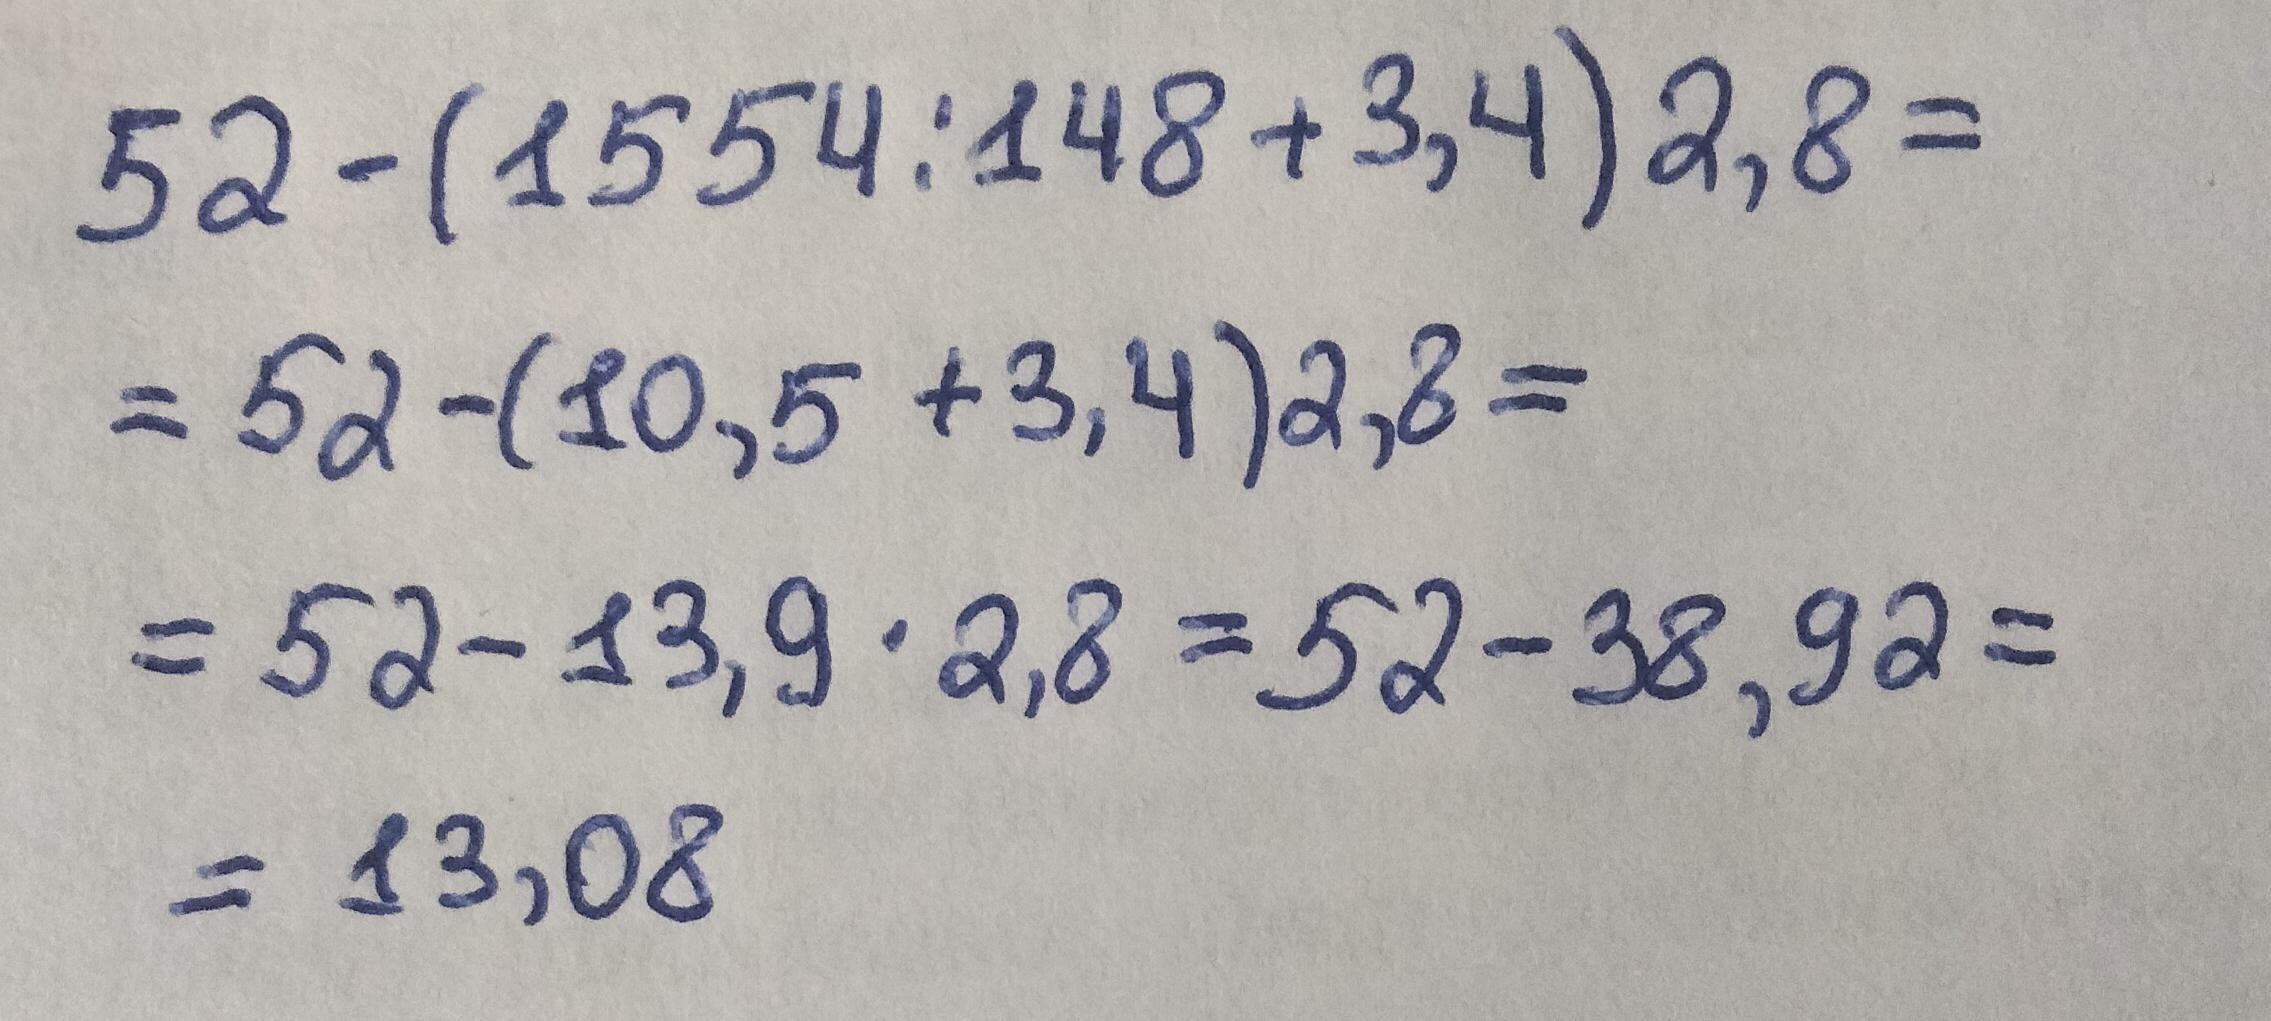 52-(1554:148+3,4)2,8=
=52-(10,5+3,4)2,8=
=52-13,9·2,8=52-38,92=
=13,08